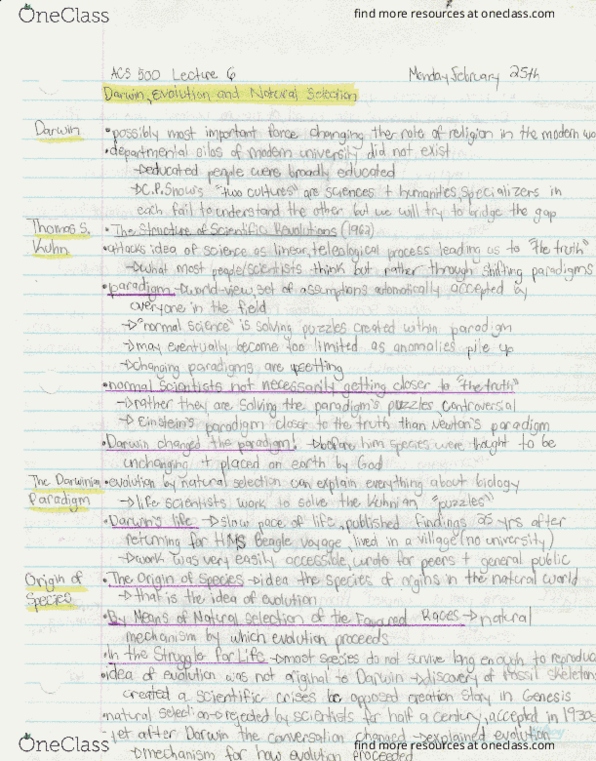 OneClass
find more resources at oneclass.com
ACS 500 Lecture 6 Monday February 25th
Darwin, Evolution and Natural Selection
Darwin •possibly most important force changing the role of religion in the modern wo
•departmental silos of modern university did not exist
→educated people were broadly educated
→C.P. Snow's "two cultures" are sciences + humanities, specializers in
each fail to understand the other but we will try to bridge the gap
Thomas S. • The Structure of Scientific Revolutions (1962)
Kuhn •attacks idea of science as linear, teleological process leading as to "the truth"
→what most people/scientists think but rather through shifting paradigms
•paradigm→world-view, set of assumptions automatically accepted by
everyone in the field
→"normal science" is solving puzzles created within paradigm
→may eventually become too limited as anomalies pile up
→changing paradigms are upsetting
•normal scientists not necessarily getting closer to "the truth"
→rather they are solving the paradigm's puzzles controversal
→ Einstein's paradigm closer to the truth than Newton's paradigm
•Darwin changed the paradigm! →before him species were thought to be
unchanging + placed on earth by God
The Darwinian •evolution by natural selection can explain everything about biology
Paradigm →life scientists work to solve the Kuhnian "puzzles"
•Darwin's life →slow pace of life, published findings 25 yrs after
returning for HMS Beagle voyage, lived in a village (no university)
→work was very easily accessible, wrote for peers + general public
Origin of •The Origin of Species→idea the species of orgins in the natural world
Species →that is the idea of evolution
•By Means of Natural Selection of the Favoured Races→natural
mechanism by which evolution proceeds
•In the Struggle for Life→most species do not survive long enough to reproduc
•idea of evolution was not original to Darwin→discovery of fossil skeletons
created a scientific crises bc opposed creation story in Genesis
•natural selection→rejected by scientists for half a century, accepted in 1930s
-yet after Darwin the conversation changed→explained evolution
→mechanism for how evolution proceeded
OneClass
find more resources at oneclass.com